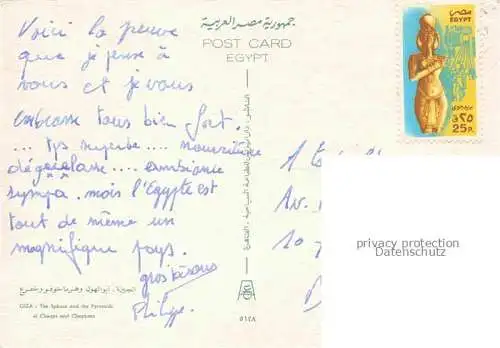 جمهورية مصر العربية
POST CARD
EGYPT
مصر
EGYPT
٢٥
25 P.
Voici la preuve
que je pense à
vous et je vous
embrasse tous bien fort.
... nourriture
dégueulasse .... ambiance
sympa. mais l'Egypte est
tout de même un
magnifique pays.
gros bisous
Philippe.
1
Av.
10
privacy protection
Datenschutz
الجيزة ، أبو الهول وهرما خوفو وخفرع
GIZA : The Sphinx and the Pyramids
of Cheops and Chephren
٥١٢٨